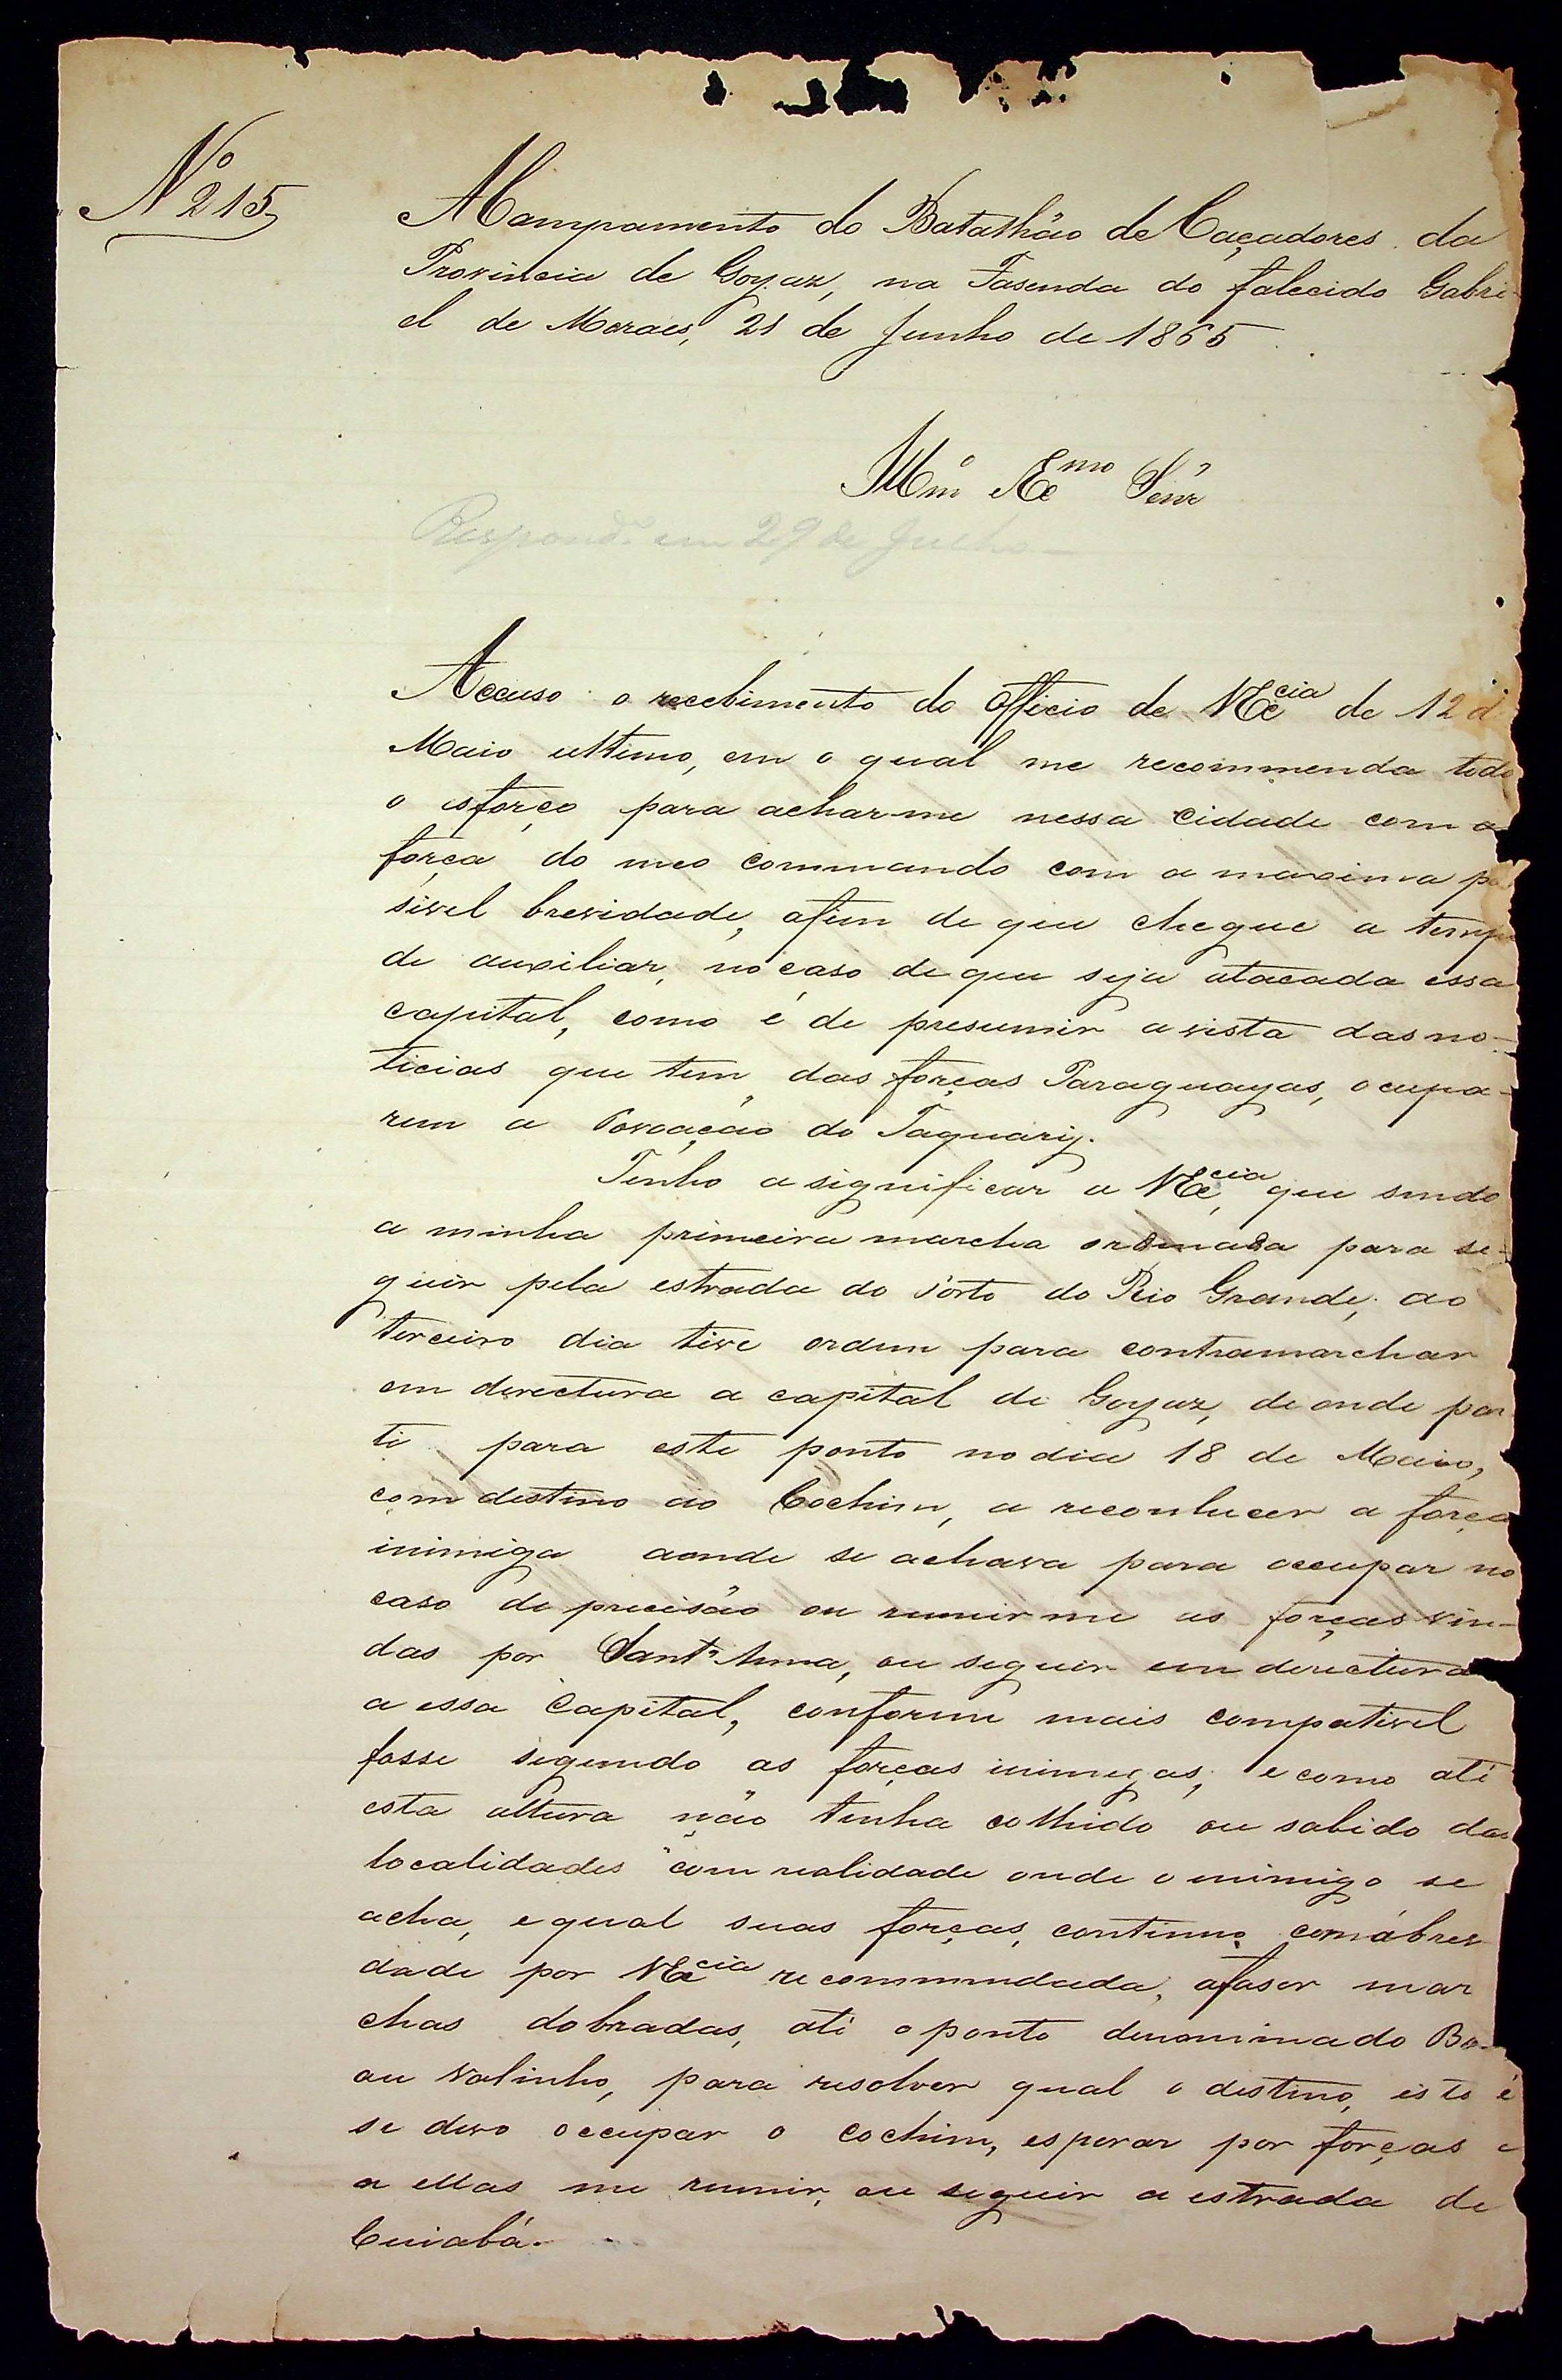 Nº 215
Acampamento do Batalhão de Caçadores da
Provincia de Goyaz, na Fasenda do falecido Gabri-
el de Moraes, 21 de Junho de 1865
Illmº Exmo Senr
Respond.º em 29 de Julho
Accuso o recebimento do officio de VExcia de 12 d
Maio ultimo, em o qual me recommenda todo
o esforço para achar-me nessa Cidade com a
força do meo commando com a maxima po
sivel brevidade, afim de que chegue a tempo
de auxiliar, no caso de que seja atacada essa
capital, como é de presumir a vista das no-
ticias que tem, das forças Paraguayas, ocupa-
rem a Povoação do Taquary.
Tenho a significar a VExcia, que sendo
a minha primeira marcha ordenada para se-
guir pela estrada do Porto do Rio Grande, ao
terceiro dia tive ordem para contramarchar
em directura a capital de Goyaz, de onde par
ti para este ponto no dia 18 de Maio,
com destino ao Cochim, a reconhecer a força
inimiga aonde se achava para occupar no
caso de precisão ou reunir me as forças vin-
das por Sant'Anna, ou seguir em directura
a essa Capital, conforme mais compativel
fosse segundo as forças inimigas, e como até
esta altura não tenha colhido ou sabido das
localidades com realidade onde o inimigo se
acha, e qual suas forças, continuo com a brev
dade por VExcia recommendada, a faser mar
chas dobradas, até o ponto denominado
ou Valinho, para resolver qual o destino, isto é
se devo occupar o Cochim, esperar por forças e
a ellas me reunir, ou seguir a estrada de
Cuiabá.